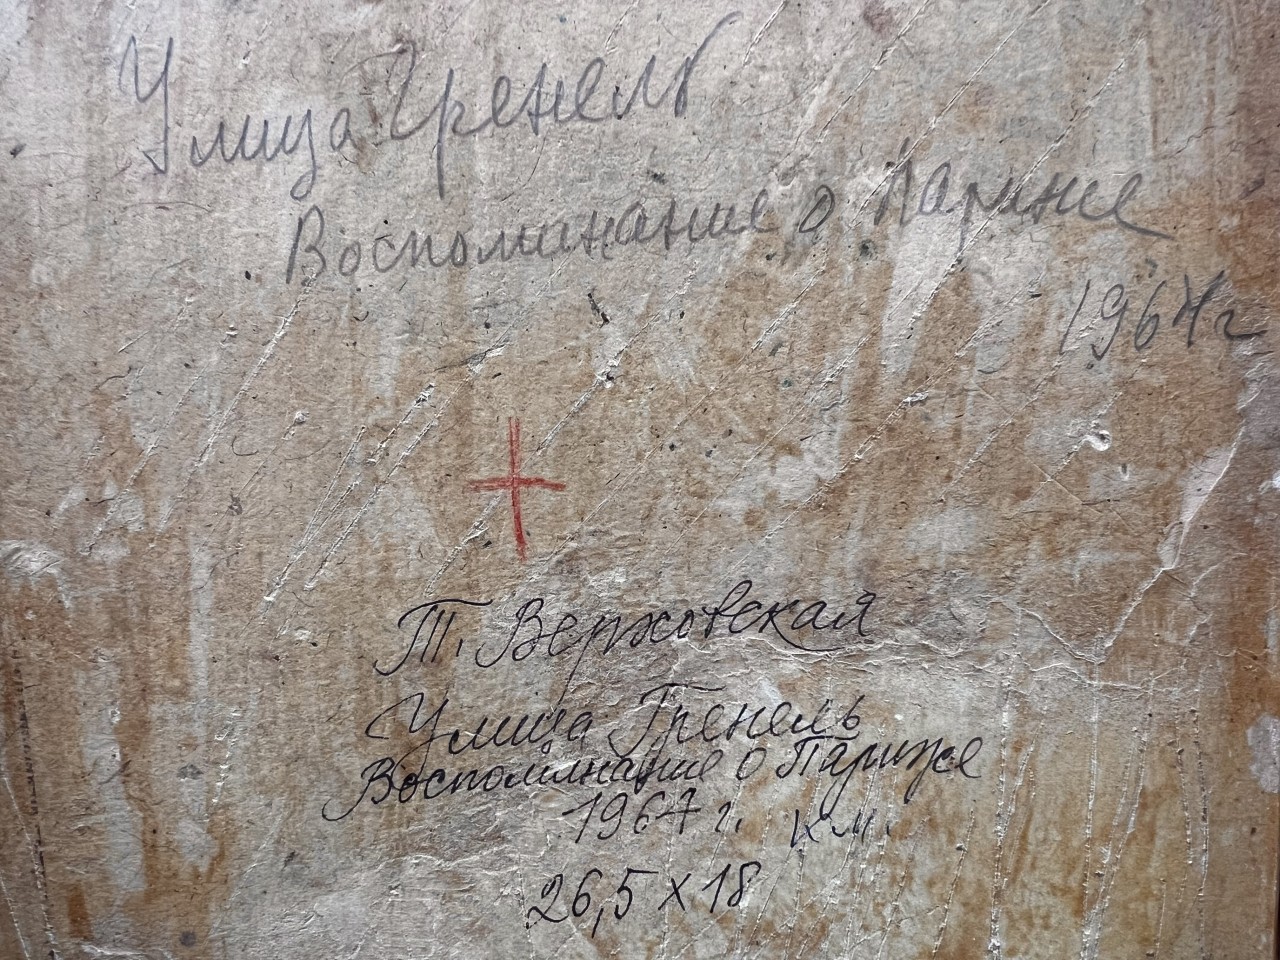 Улица Гренель
Воспоминание о Париже
1967г
Т. Верховская
Улица Гренель
Воспоминание о Париже
1967 г. к.м.
26,5 x 18